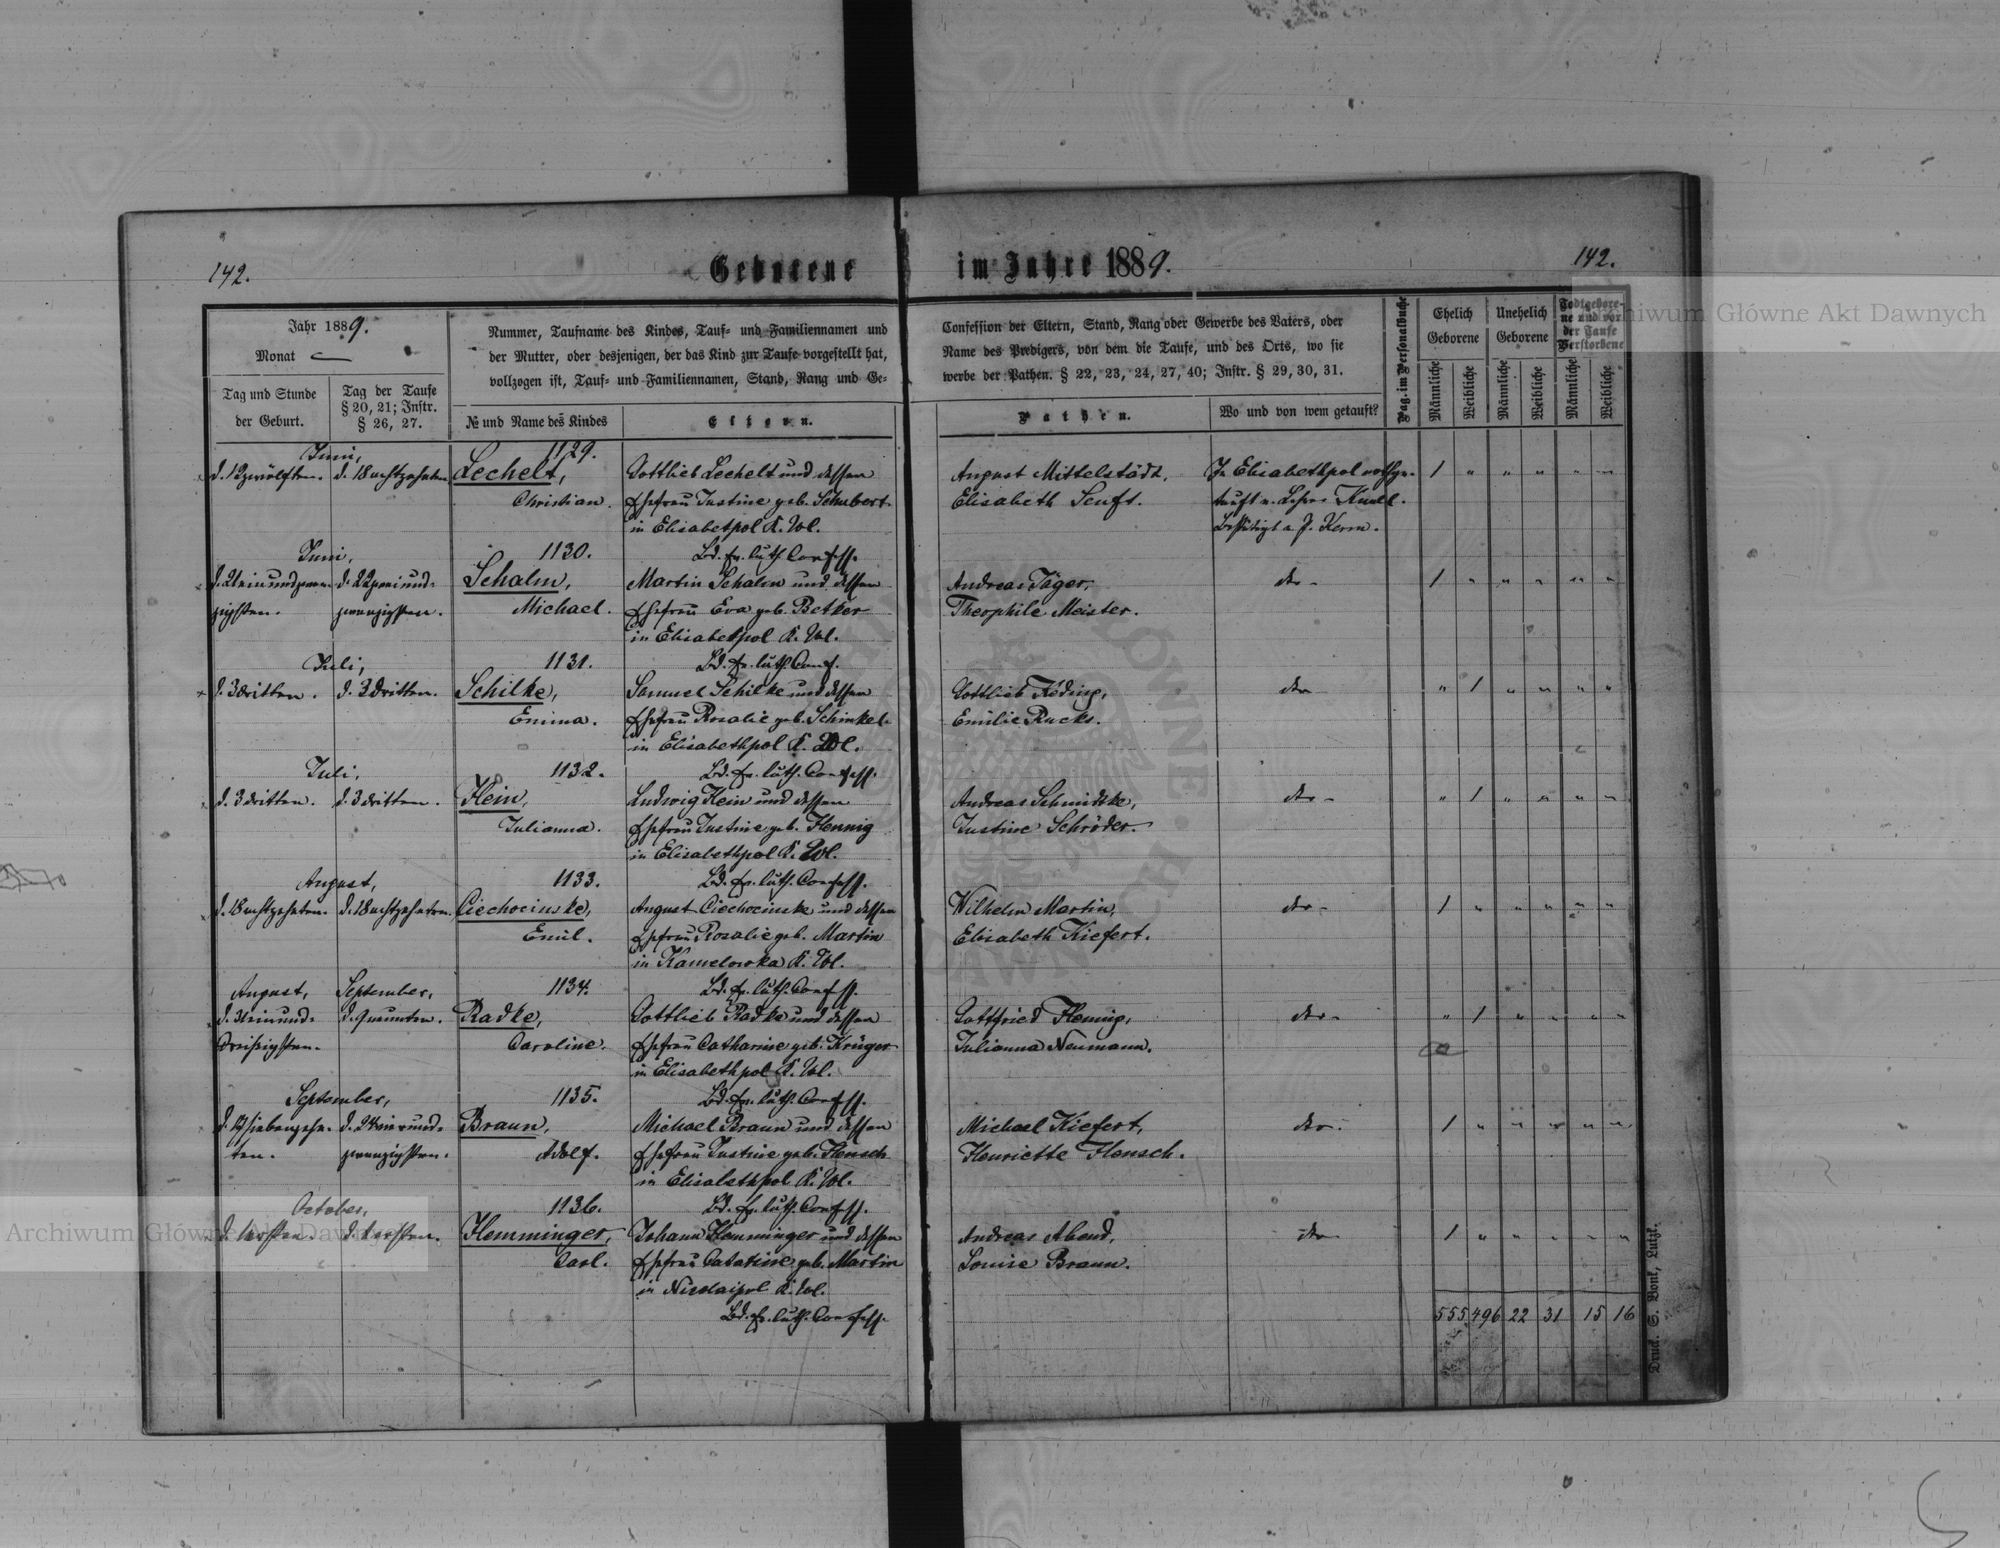 142.
Geborene im Jahre 1889.
142.
Jahr 1889.
Monat
Tag und Stunde
der Geburt.
Tag der Taufe
§ 20, 21; Instr.
§ 26, 27.
Nummer, Taufname des Kindes, Tauf- und Familiennamen und
der Mutter, oder desjenigen, der das Kind zur Taufe vorgestellt hat,
vollzogen ist, Tauf- und Familiennamen, Stand, Rang und Ge-
№ und Name des Kindes
Eltern.
Confession der Eltern, Stand, Rang oder Gewerbe des Vaters, oder
Name des Predigers, von dem die Taufe, und des Orts, wo sie
werbe der Pathen. § 22, 23, 24, 27, 40; Instr. § 29, 30, 31.
Pathen.
Wo und von wem getauft?
Pag. im Personalbuche
Ehelich
Geborene
Unehelich
Geborene
Todtgebore-
ne und vor
der Taufe
Verstorbene
Männliche
Weibliche
Männliche
Weibliche
Männliche
Weibliche
Juni,
1129.
d. 12 zwölften. d. 18 achtzehnten. Lechelt, Gottlieb Lechelt und dessen August Mittelstädt, In Elisabethpol 1 " " " " "
Christian. Ehefrau Justine geb. Schubert Elisabeth Senft. tauft v. Lehrer
in Elisabetpol K. Wol. Bestätigt v. P. Kerm.
Juni, 1130. Bd. ev. luth. Confess.
d. 21 einundzwan- d. 22 zweiund- Schalm, Martin Schalm und dessen Andreas Jäger, dto - 1 " " " " "
zigsten. zwanzigsten. Michael. Ehefrau Eva geb. Betker Theophile Meister.
in Elisabetpol K. Wol.
Juli, 1131. Bd. ev. luth. Conf.
d. 3 dritten. d. 3 dritten. Schilke, Samuel Schilke und dessen Gottlieb Käding, dto " 1 " " " "
Emma. Ehefrau Rosalie geb. Schinkel Emilie Rucks.
in Elisabethpol K. Wol.
Juli, 1132. Bd. ev. luth. Confess.
d. 3 dritten. d. 3 dritten. Hein, Ludwig Hein und dessen Andreas Schmidtke, dto - " 1 " " " "
Julianna. Ehefrau Justine geb. Hennig Justine Schröder.
in Elisabethpol K. Wol.
August, 1133. Bd. ev. luth. Confess.
d. 18 achtzehnten. d. 18 achtzehnten. Ciechocinske, August Ciechocinske und dessen Wilhelm Martin, dto - 1 " " " " "
Emil. Ehefrau Rosalie geb. Martin Elisabeth Kiefert.
in Kamelowka K. Wol.
August, September, 1134. Bd. ev. luth. Confess.
d. 31 einund- d. 9 neunten. Radke, Gottlieb Radke und dessen Gottfried Hennig, dto - " 1 " " " "
dreißigsten. Caroline. Ehefrau Catharine geb. Krüger Julianna Neumann.
in Elisabethpol K. Wol.
September, 1135. Bd. ev. luth. Confess.
d. 17 siebenzehn- d. 24 vierund- Braun, Michael Braun und dessen Michael Kiefert, dto. 1 " " " " "
ten. zwanzigsten. Adolf. Ehefrau Justine geb. Hensch Henriette Hensch.
in Elisabethpol K. Wol.
October, 1136. Bd. ev. luth. Confess.
d. 1 ersten. d. 1 ersten. Hemminger, Johann Hemminger und dessen Andreas Abend, dto - 1 " " " " "
Carl. Ehefrau Catarine geb. Martin Louise Braun.
in Nicolaipol K. Wol.
Bd. ev. luth. Confess.
555 496 22 31 15 16
Druck. S. Bonk, Lutzk.
Archiwum Główne Akt Dawnych
Archiwum Główne Akt Dawnych